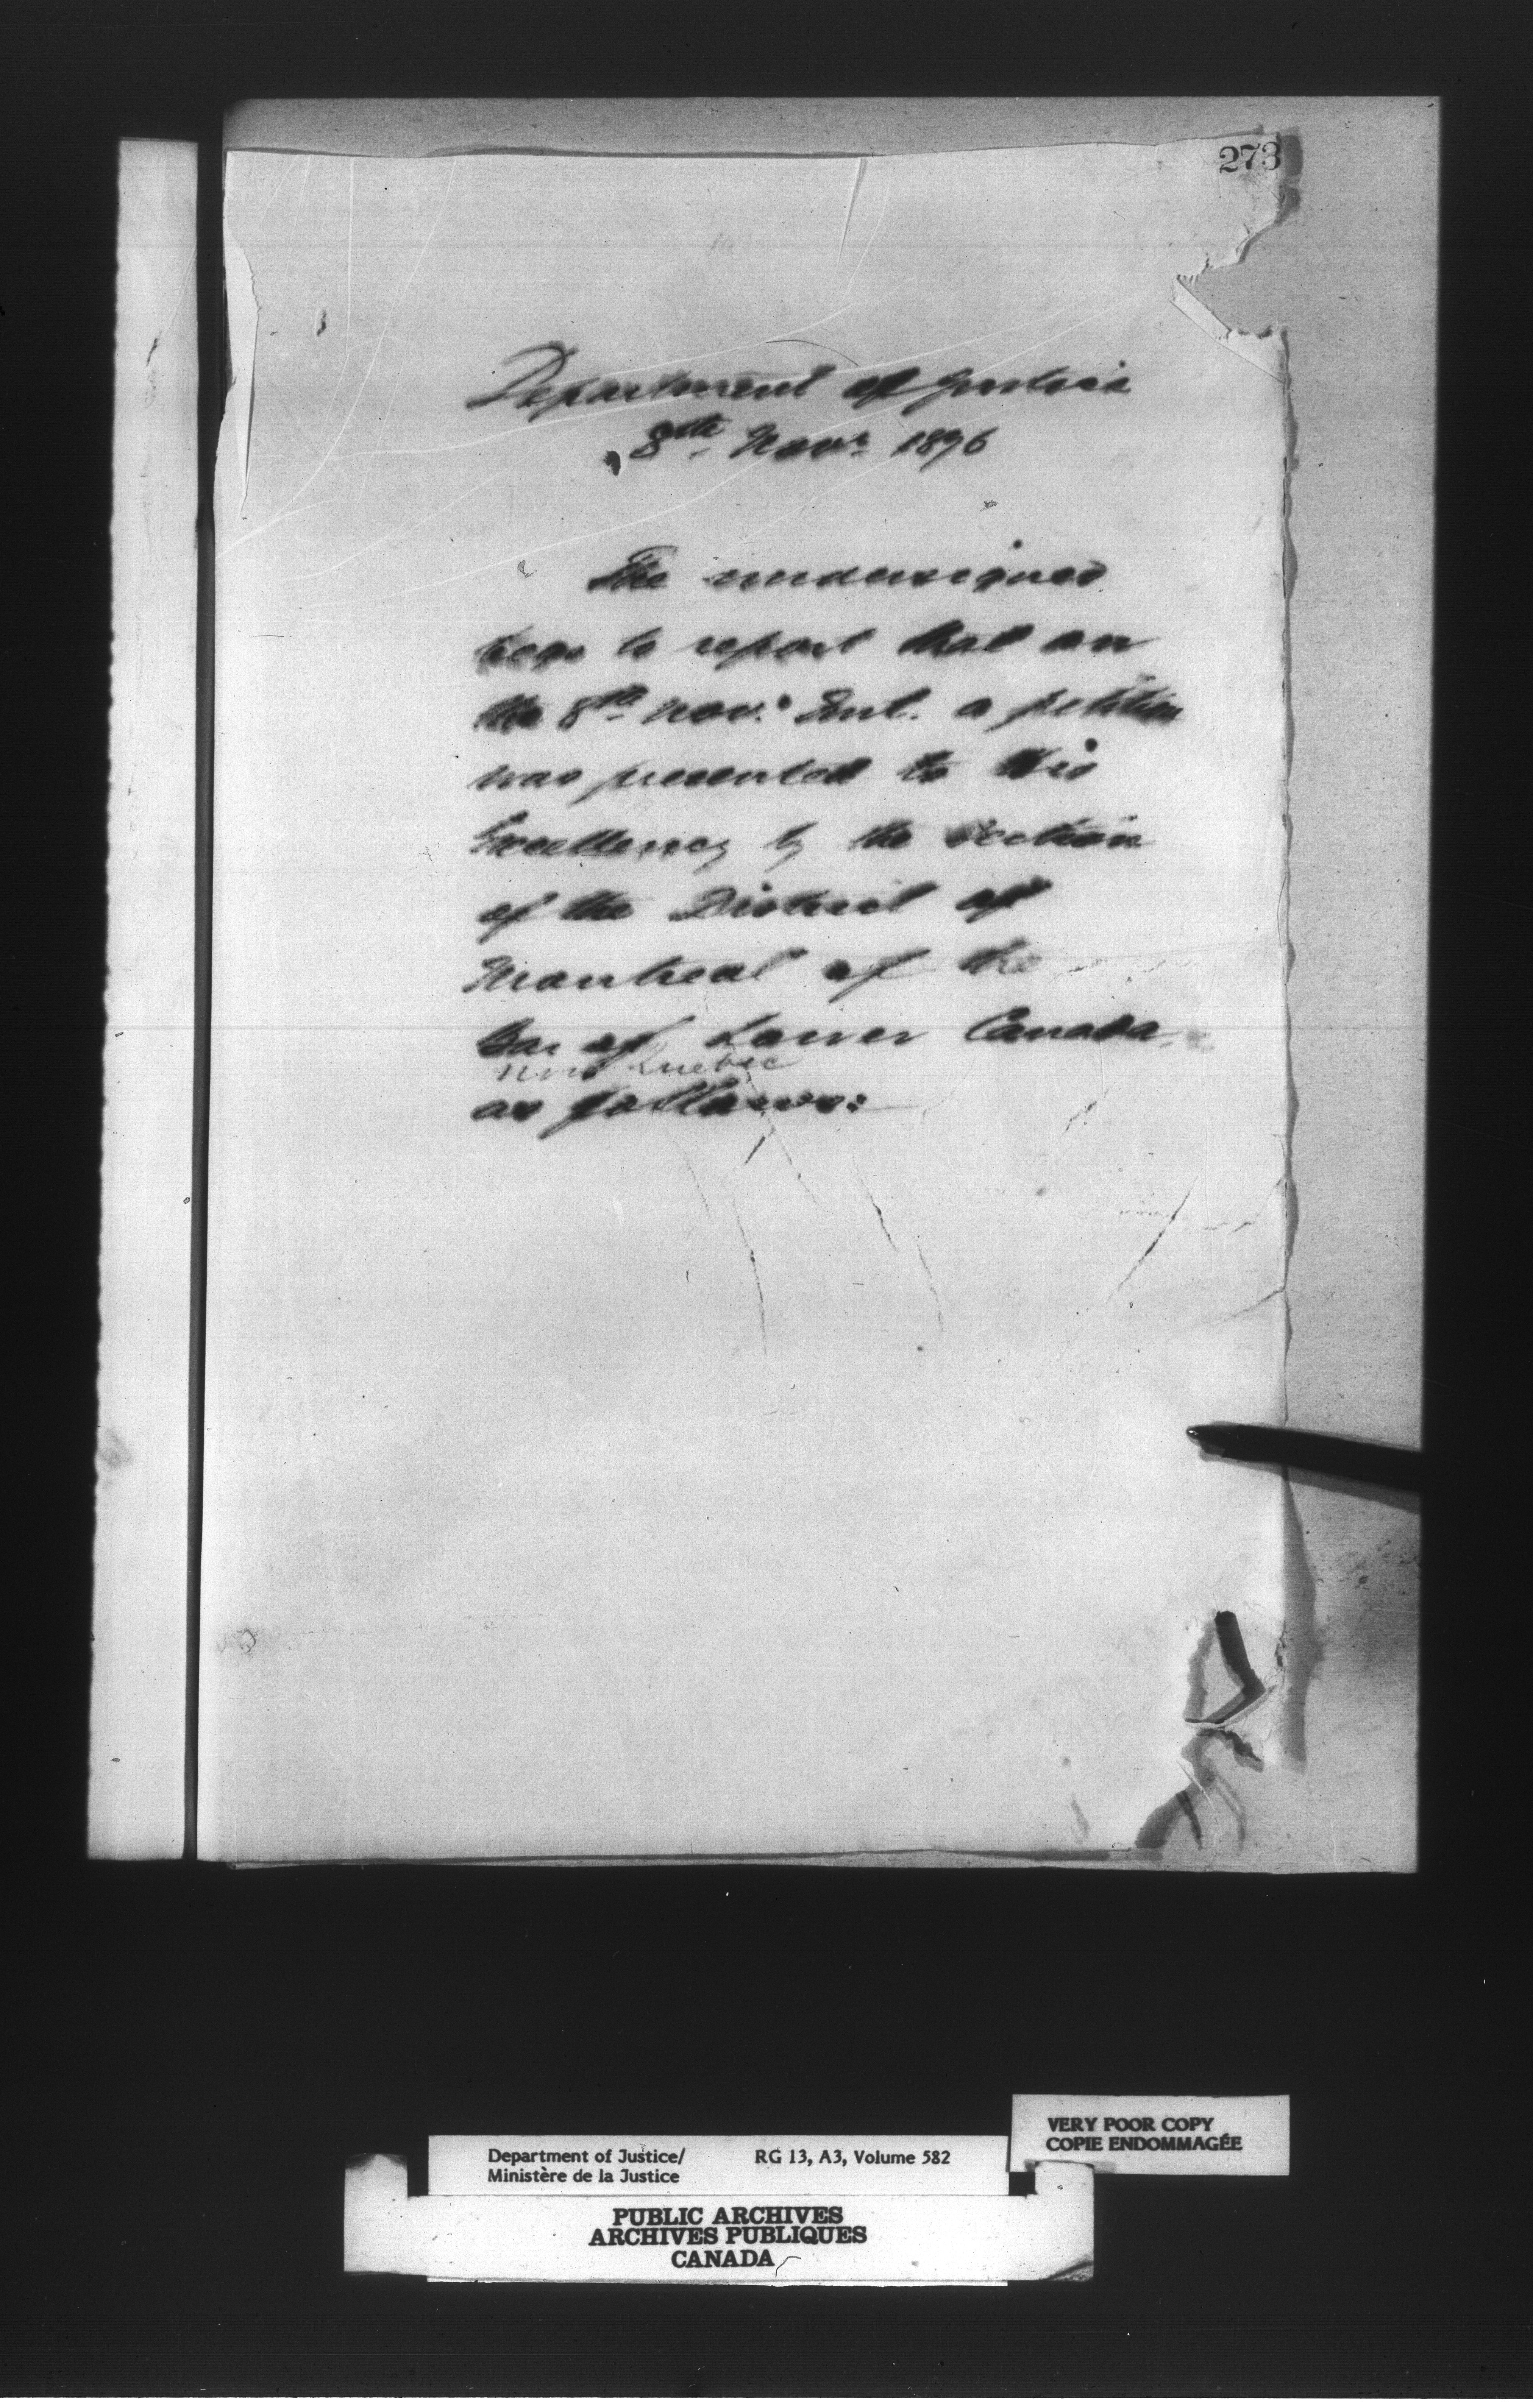 273
Department of Justice
8th Novr 1896
The undersigned
begs to report that on
the 8th Nov. Inst. a petition
was presented to His
Excellency by the section
of the District of
Montreal of the
Bar of Lower Canada
now Quebec
as follows:
VERY POOR COPY
COPIE ENDOMMAGÉE
Department of Justice/ RG 13, A3, Volume 582
Ministère de la Justice
PUBLIC ARCHIVES
ARCHIVES PUBLIQUES
CANADA